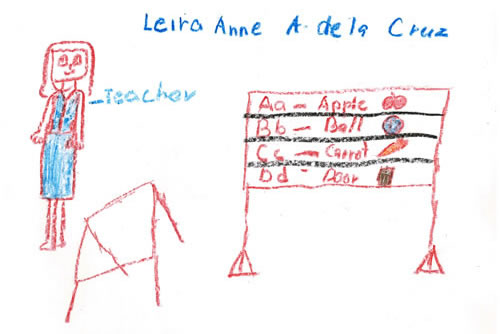 Leira Anne A. de la Cruz
Teacher
Aa - Apple
Bb - Ball
Cc - Carrot
Dd - Door